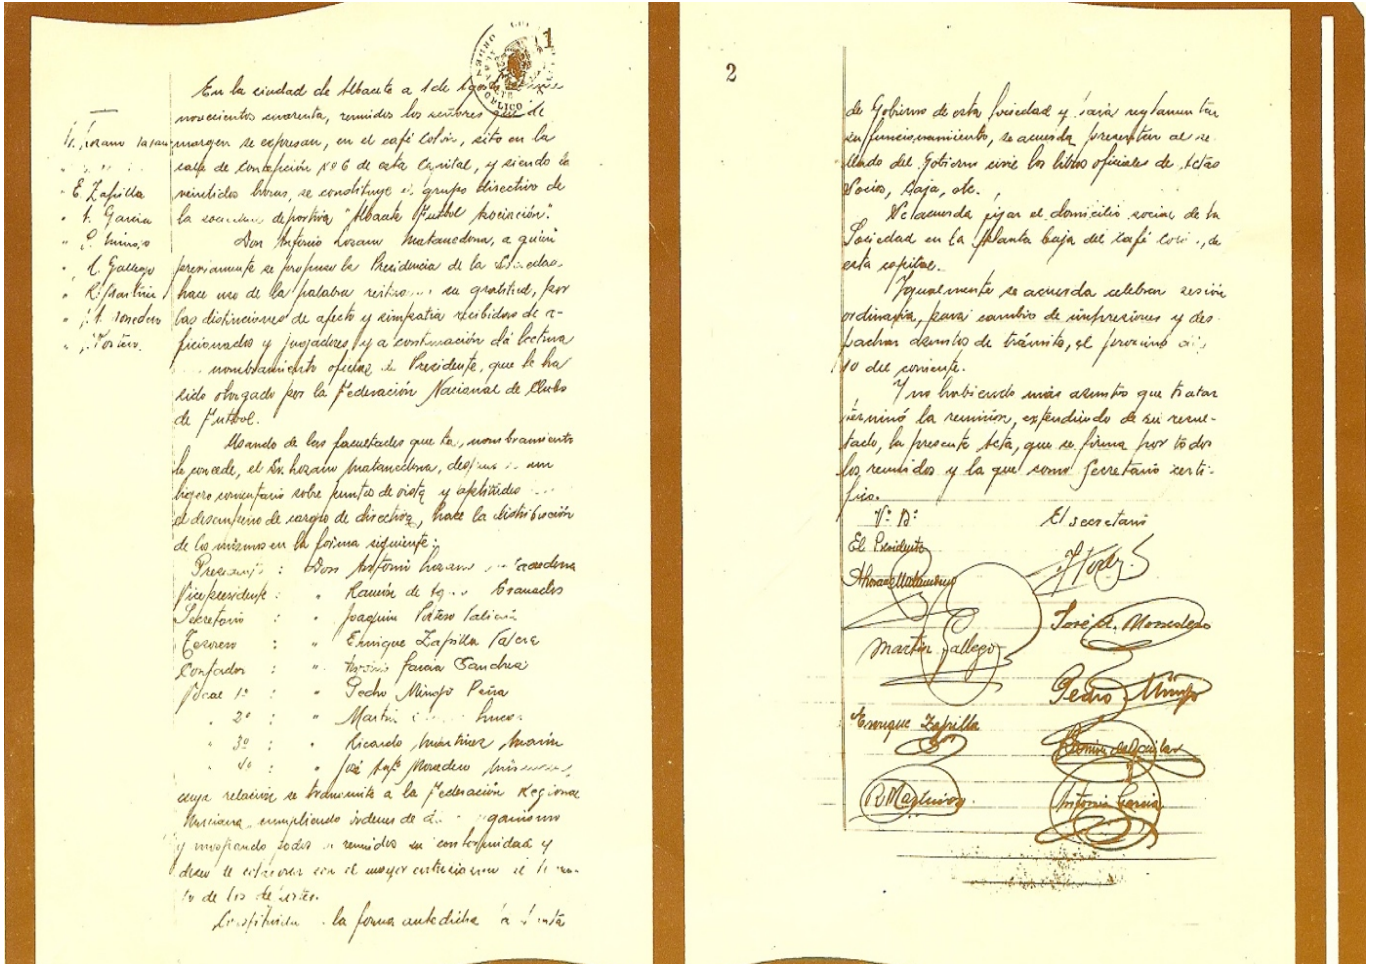 1
En la ciudad de Albacete a 1 de Agosto de
novecientos cuarenta, reunidos los señores que de
margen se expresan, en el café Colón, sito en la
calle de Concepción nº 6 de esta Capital, y siendo la
veintidos horas, se constituye el grupo directivo de
la sociedad deportiva "Albacete Futbol Asociación".
Don Antonio Lozano Matamedona, a quien
previamente se propuso la Presidencia de la Sociedad
hace uso de la palabra su gratitud, por
las distinciones de afecto y simpatía recibidas de a-
ficionados y jugadores y a continuación dá lectura
nombramiento oficial de Presidente, que le ha
sido otorgado por la Federación Nacional de Clubs
de Futbol.
Usando de las facultades que tal nombramiento
le concede, el Sr. Lozano Matamedona, despues un
ligero comentario sobre puntos de vista y aptitudes
el desempeno de cargos de directiva, hace la distribución
de los mismos en la forma siguiente:
Presidente : Don Antonio Lozano
Vicepresidente : " Ramón de Granados
Secretario : " Joaquin
Tesorero : " Enrique Zafrilla
Contador : " Antonio García
Vocal 1º : " Pedro Minayo Peña
" 2º : " Martin
" 3º : " Ricardo Martínez Marín
" 4º : " José Antº Monedero
cuya relación se transmite a la Federación Regional
Murciana, cumpliendo ordenes de
y mostrando todos reunidos su conformidad y
deseo de colaborar con el mayor entusiasmo
Constituida la forma antedicha la Junta
E. Zafrilla
" A. Garcia
" P. Minayo
" M. Gallego
" R. Martínez
" J. A. Monedero
2
de Gobierno de esta Sociedad y para reglamentar
su funcionamiento, se acuerda presentar al se-
llado del Gobierno civil los libros oficiales de Actas
Socios, Caja, etc.
Se acuerda fijar el domicilio social de la
Sociedad en la planta baja del café Colón, de
esta capital.
Igualmente se acuerda celebrar sesión
ordinaria, para cambio de impresiones y des-
pachar asuntos de trámite, el proximo dia
10 del corriente.
Y no habiendo más asuntos que tratar
terminó la reunión, extendiendo de su resul-
tado, la presente Acta, que se firma por todos
los reunidos y la que como Secretario certi-
fico.
Vº Bº
El Presidente
El secretario
José A. Monedero
Martin Gallego
Pedro Minayo
Enrique Zafrilla
R. Martinez
Antonio Garcia